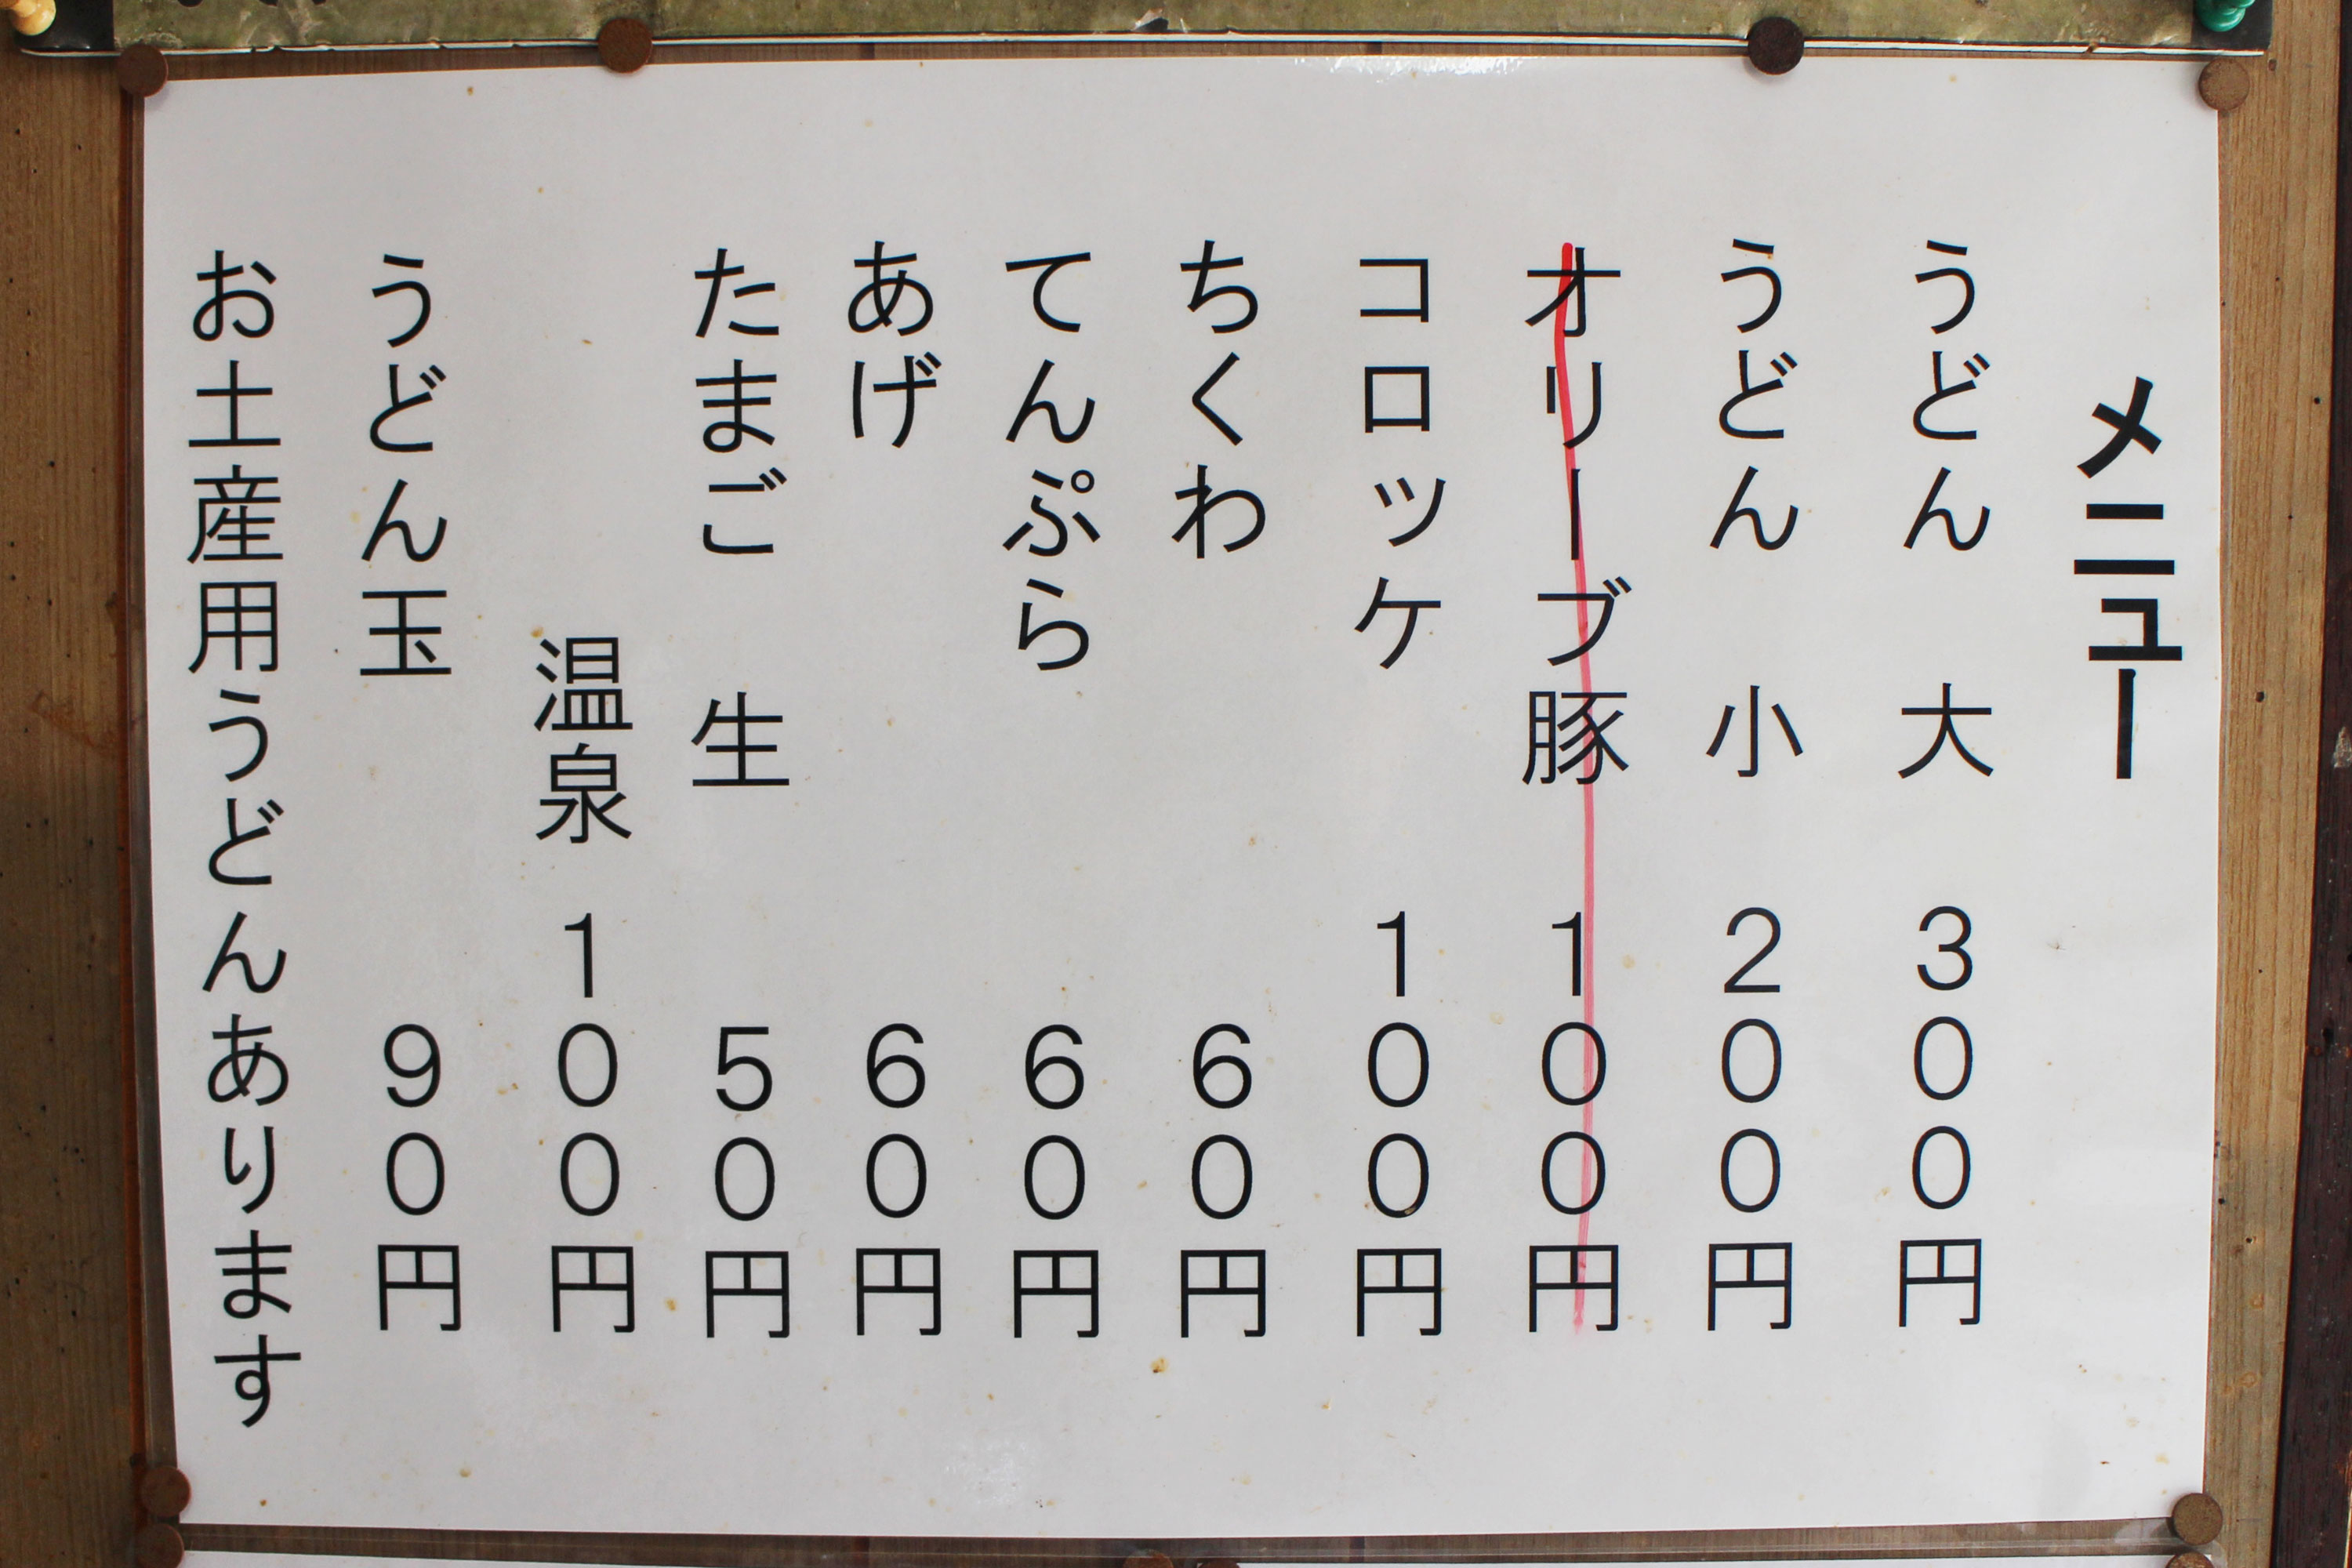 メニュー
うどん 大 300円
うどん 小 200円
オリーブ豚 100円
コロッケ 100円
ちくわ 60円
てんぷら 60円
あげ 60円
たまご 生 50円
温泉 100円
うどん玉 90円
お土産用うどんあります